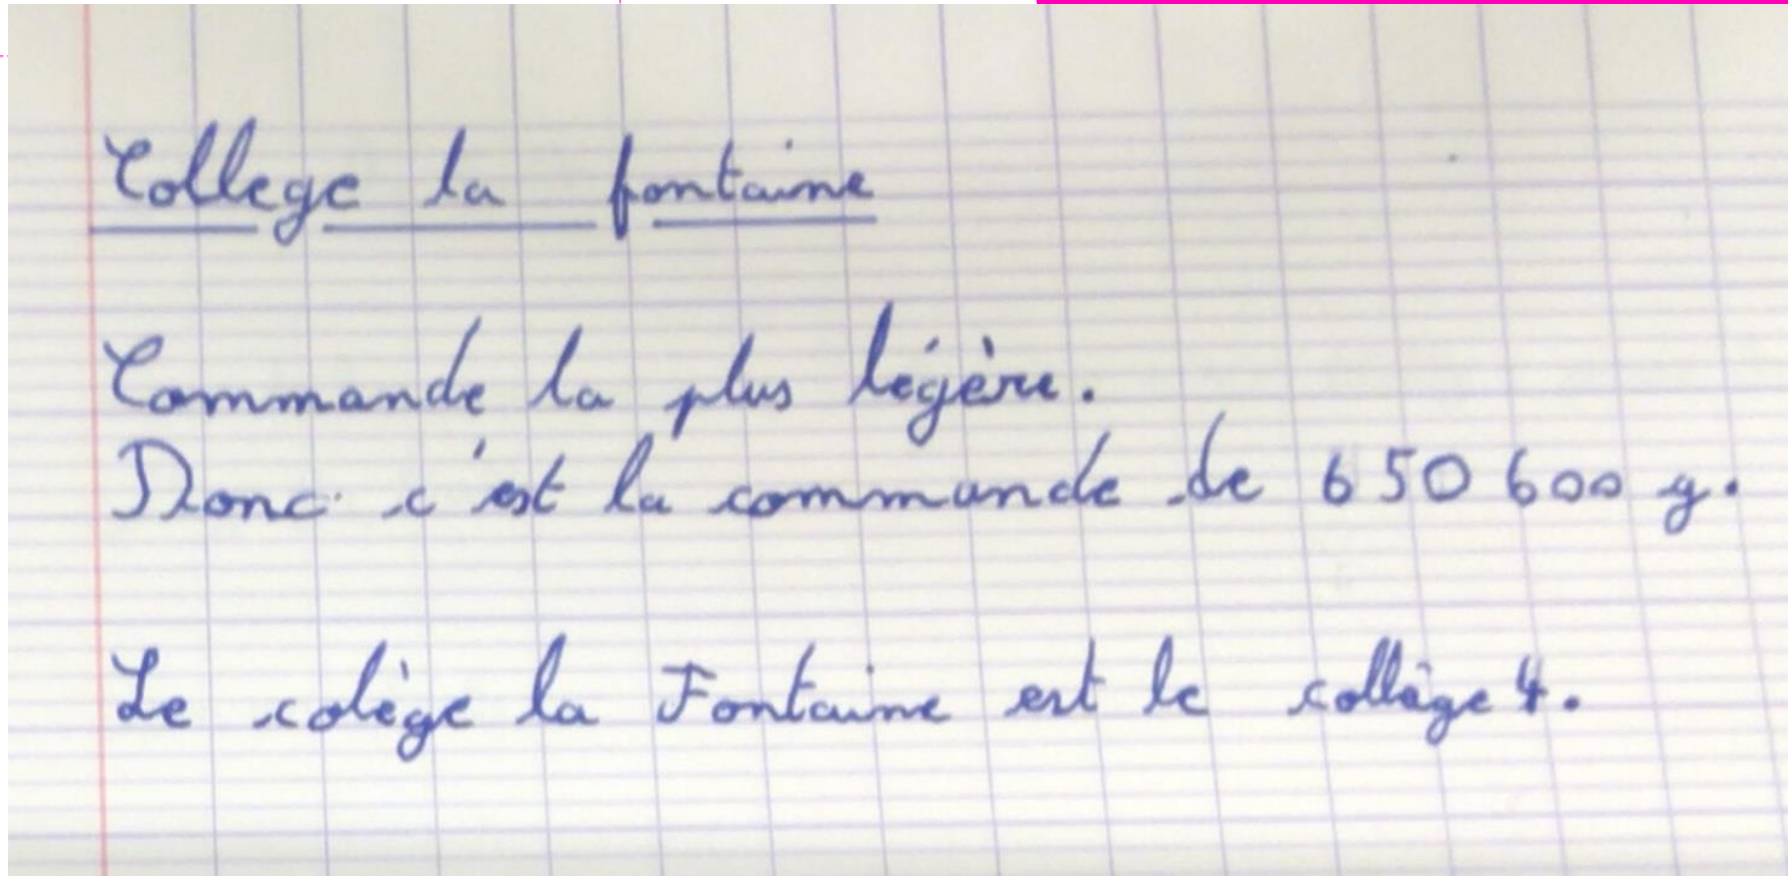 College la fontaine
Commande la plus légère.
Donc c'est la commande de 650 600 g.
Le colège la Fontaine est le collège 4.